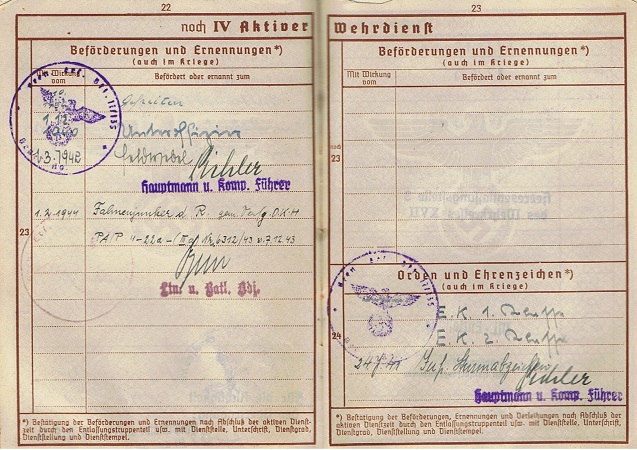 22
noch IV Aktiver
Beförderungen und Ernennungen*)
(auch im Kriege)
Mit Wirkung vom
Befördert oder ernannt zum
1.12.1940 Unteroffizier
1.3.1942 Feldwebel
Hauptmann u. Komp. Führer
23
1.2.1944 Fahnenjunker d. R. gem. Verfg. O.K.H
PA/P
7.12.43
Ltn. u. Batl. Adj.
*) Bestätigung der Beförderungen und Ernennungen nach Abschluß der aktiven Dienst-
zeit durch den Entlassungstruppenteil usw. mit Dienststelle, Unterschrift, Dienstgrad,
Dienststellung und Dienststempel.
23
Wehrdienst
Beförderungen und Ernennungen*)
(auch im Kriege)
Mit Wirkung vom
Befördert oder ernannt zum
noch
23
Orden und Ehrenzeichen*)
(auch im Kriege)
24
E.K. 1. Klasse
E.K. 2. Klasse
Inf. Sturmabzeichen
Hauptmann u. Komp. Führer
*) Bestätigung der Beförderungen, Ernennungen und Verleihungen nach Abschluß der
aktiven Dienstzeit durch den Entlassungstruppenteil usw. mit Dienststelle, Unterschrift,
Dienstgrad, Dienststellung und Dienststempel.